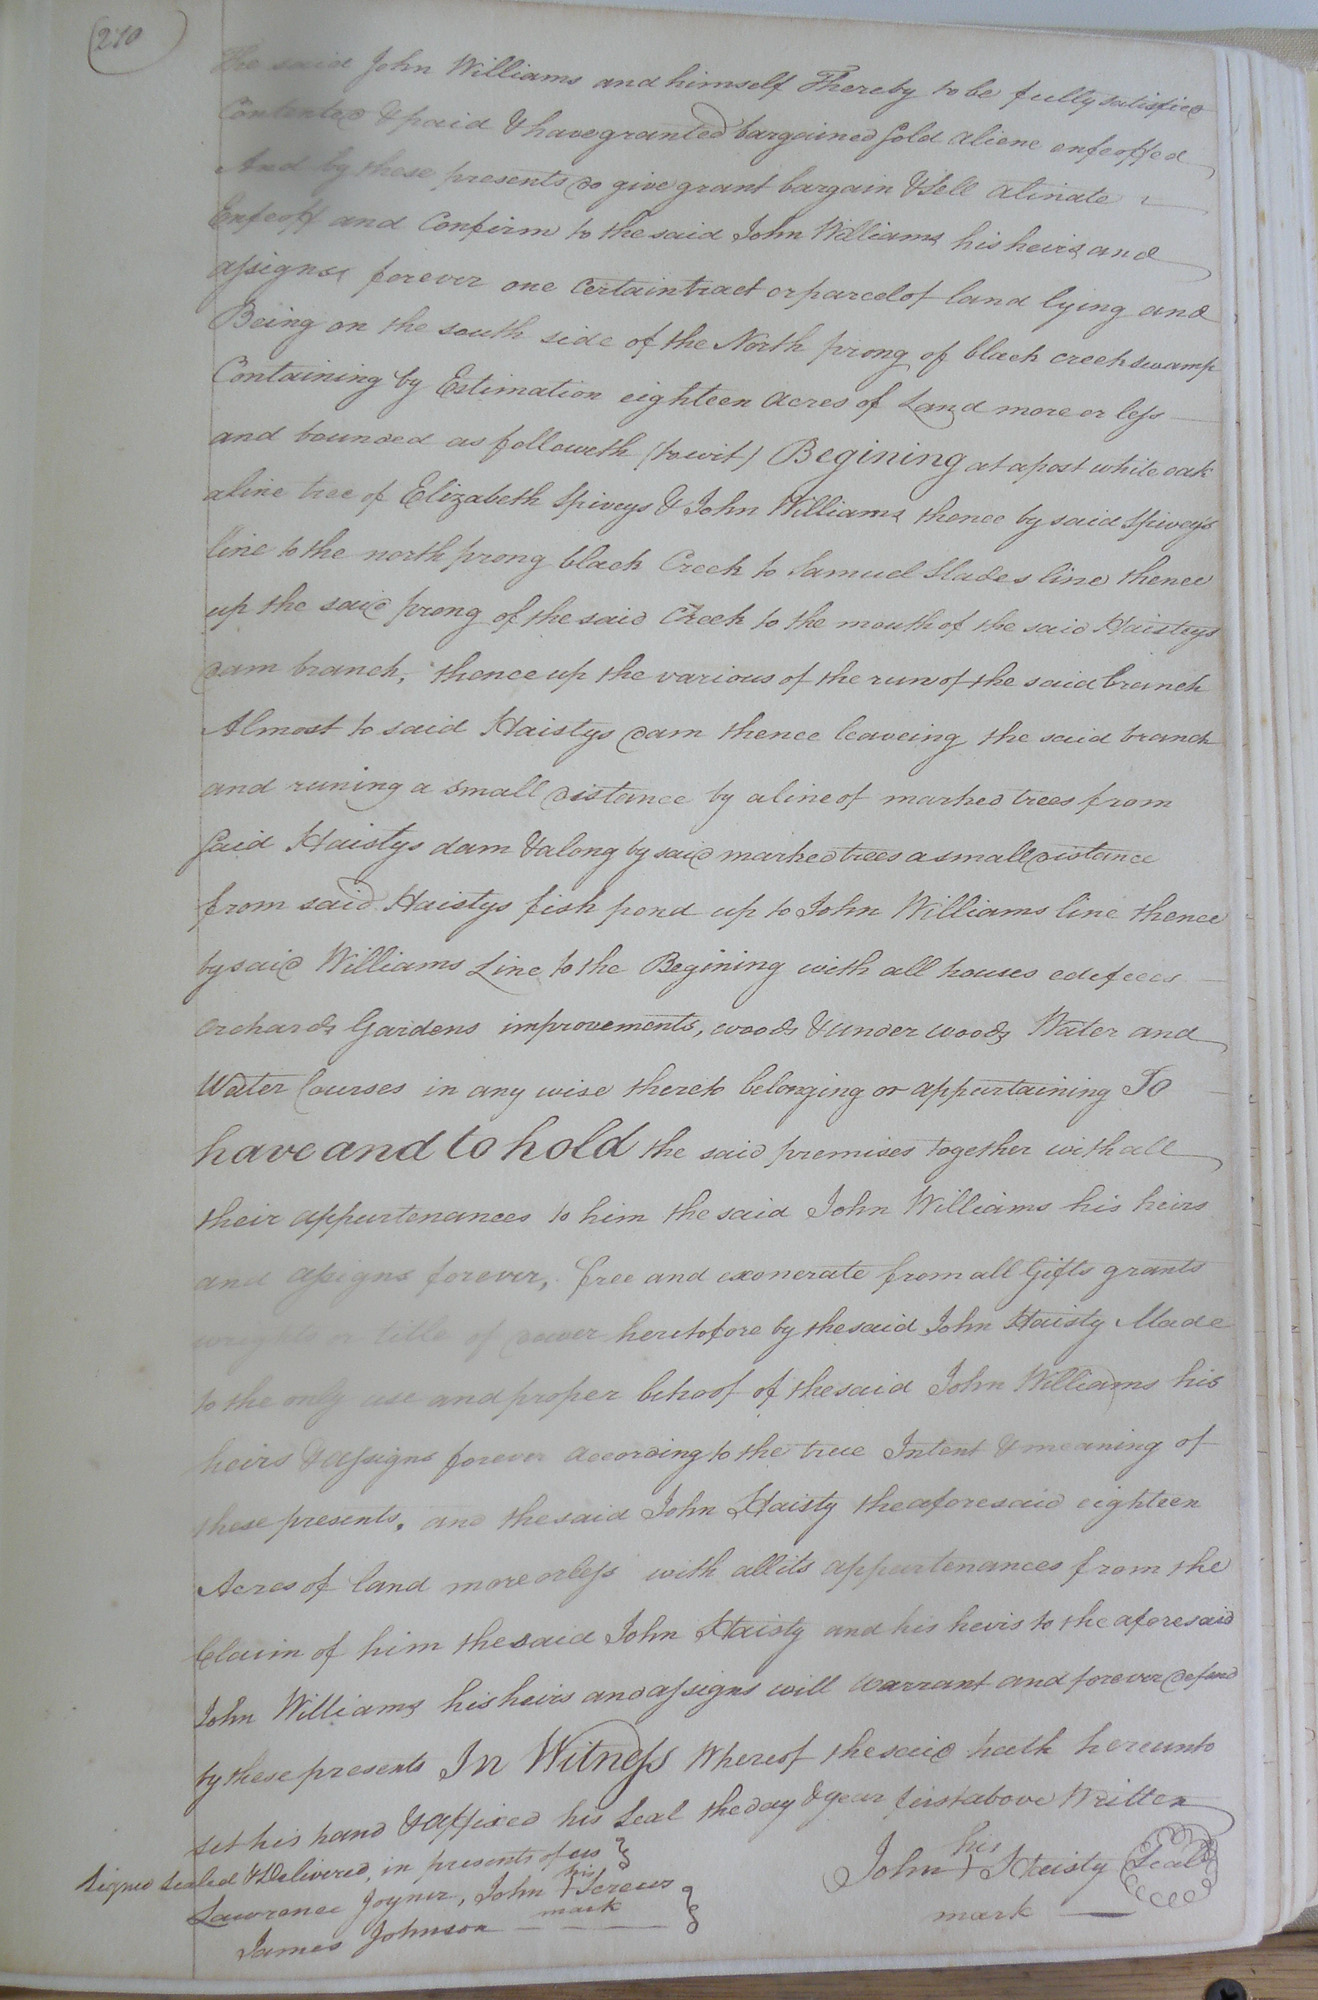 270
The said John Williams and himself Thereby to be fully satisfied
Contented & paid & have granted bargained Sold aliene enfeoffed
And by these presents do give grant bargain & Sell alinate
Enfeoff and Confirm to the said John Williams his heirs and
assigns forever one Certain tract or parcel of land lying and
Being on the south side of the North prong of black creek swamp
Containing by Estimation eighteen acres of Land more or less
and bounded as followeth (towit) Begining at a post white oak
a line tree of Elizabeth Spiveys & John Williams thence by said Spivey's
line to the north prong black Creek to Samuel Slades line thence
up the said prong of the said Creek to the mouth of the said Haistys
dam branch, thence up the various of the run of the said branch
Almost to said Haistys dam thence leaveing the said branch
and runing a small distance by a line of marked trees from
Said Haistys dam & along by said marked trees a small distance
from said Haistys fish pond up to John Williams line thence
by said Williams Line to the Begining with all houses edefeces
orchards Gardens improvements, woods & under woods Water and
Water Courses in any wise thereto belonging or appurtaining To
have and to hold the said premises together with all
their appurtenances to him the said John Williams his heirs
and assigns forever, free and exonerate from all Gifts grants
or title of dower heretofore by the said John Haisty Made
to the only use and proper behoof of the said John Williams his
heirs & assigns forever according to the true Intent & meaning of
these presents. and the said John Haisty the aforesaid eighteen
Acres of land more or less with all its appurtenances from the
Claim of him the said John Haisty and his heirs to the aforesaid
John Williams his heirs and assigns will warrant and forever defend
by these presents In Witness Whereof the said hath hereunto
set his hand & affixed his Seal the day & year first above Written
Signed Sealed & Delivered, in presents of us
Lawrence Joyner, John his + mark Screws
James Johnson
his
John + Haisty Seal
mark